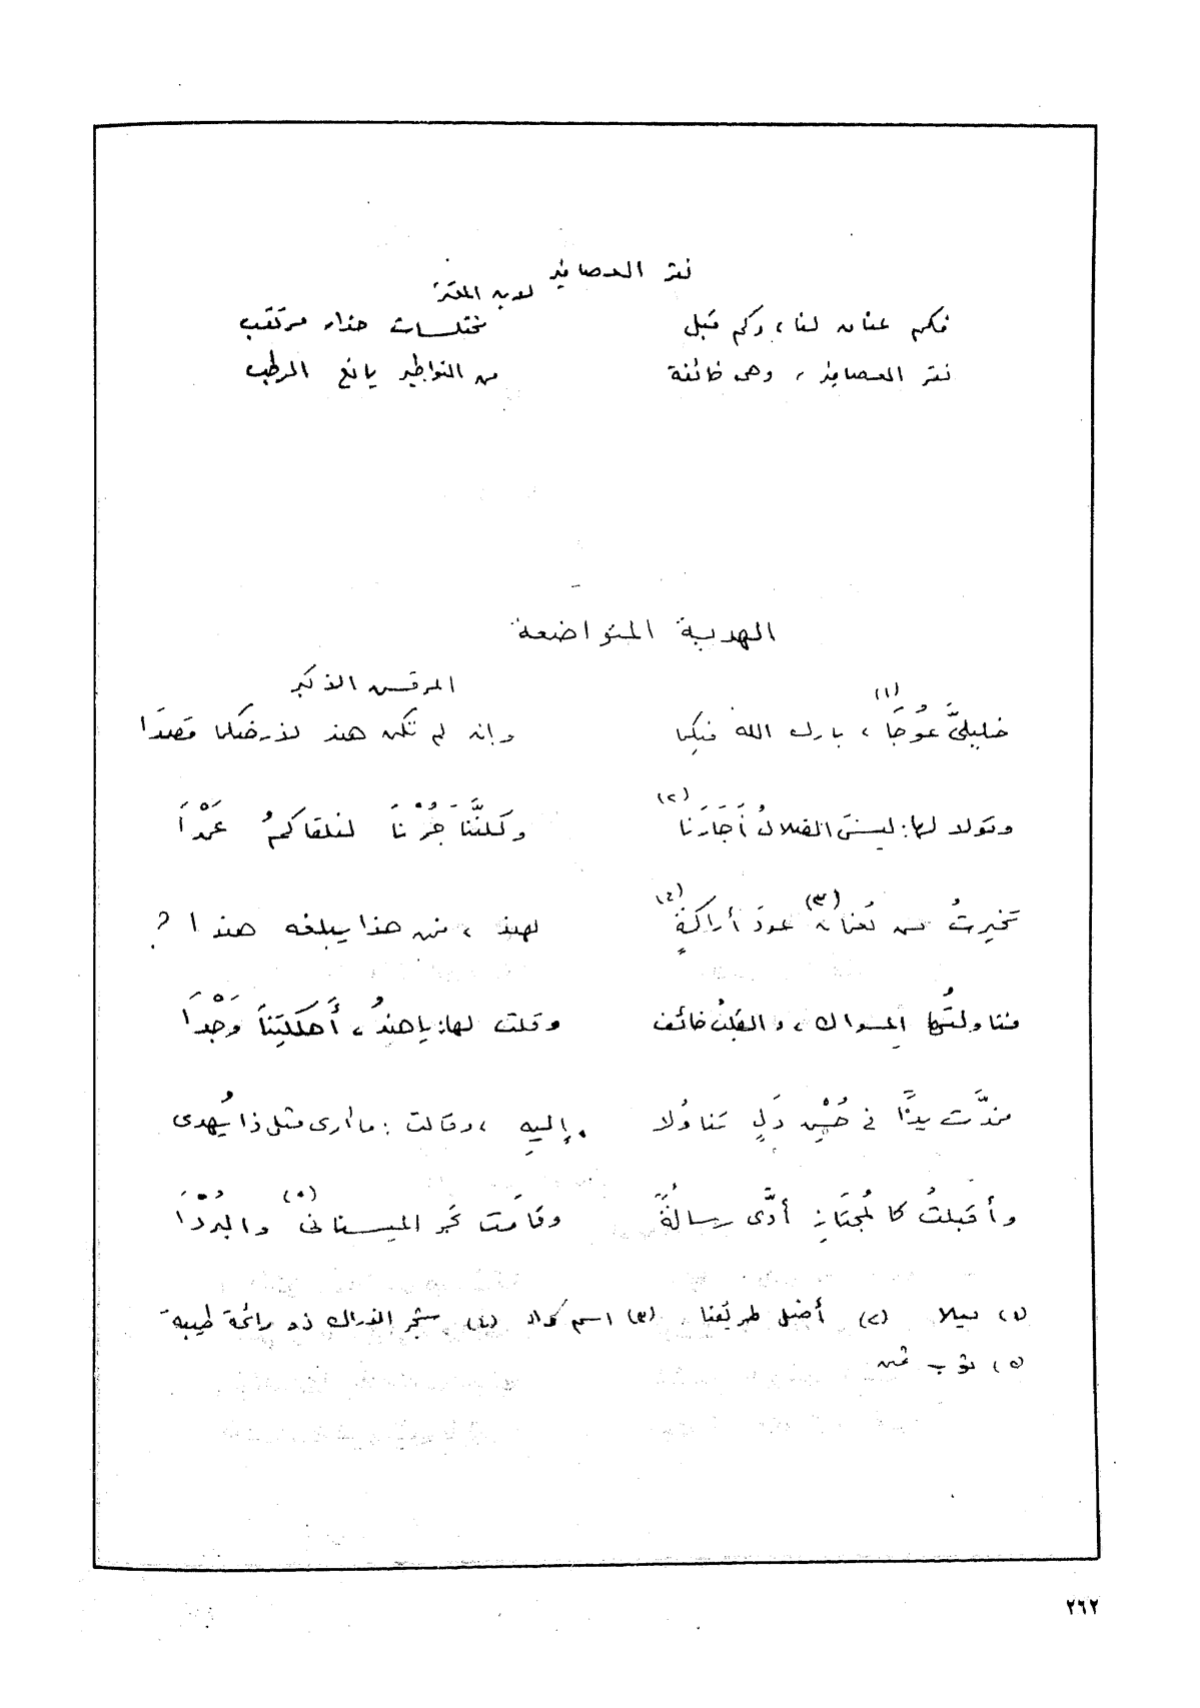 نقر العصافير
لابن المعتز
فكم عناق لنا، وكم قبل مختلسات حذار مرتقب
نقر العصافير، وهى خائفة من النواطير يانع الرطب
الهدية المتواضعة
المرقس الأكبر
خليليَّ عُوجَا (١)، بارك الله فيكما وإن لم تكن هند لأرضكما قصدَا
وقولا لها: ليسَ الضلالُ أَجَارَنا (٢) ولكنَّنا جُرْنَا لنلقاكمُ عَمْدَا
تخيرتُ من نَعمان (٣) عودَ أراكةٍ (٤) لهند، فمن هذا يبلغه هندا؟
فناولتُها المسواك، والقلبُ خائف وقلت لها: ياهندُ، أَهلكتِنَا وَجْدَا
فمدَّت يدًا في حُسْنِ دَلٍ تناولا إليهِ، وقالت: ما أرى مثل ذا يُهدى
وأقبلتُ كالمُجتَازِ أدَّى رسالةً وقامَت تجر الميسنانى (٥) والبُرْدَا
(١) ميلا (٢) أضل طريقنا (٣) اسم مكان (٤) شجر الأراك ذو رائحة طيبة
(٥) ثوب ثمين
٢٦٢